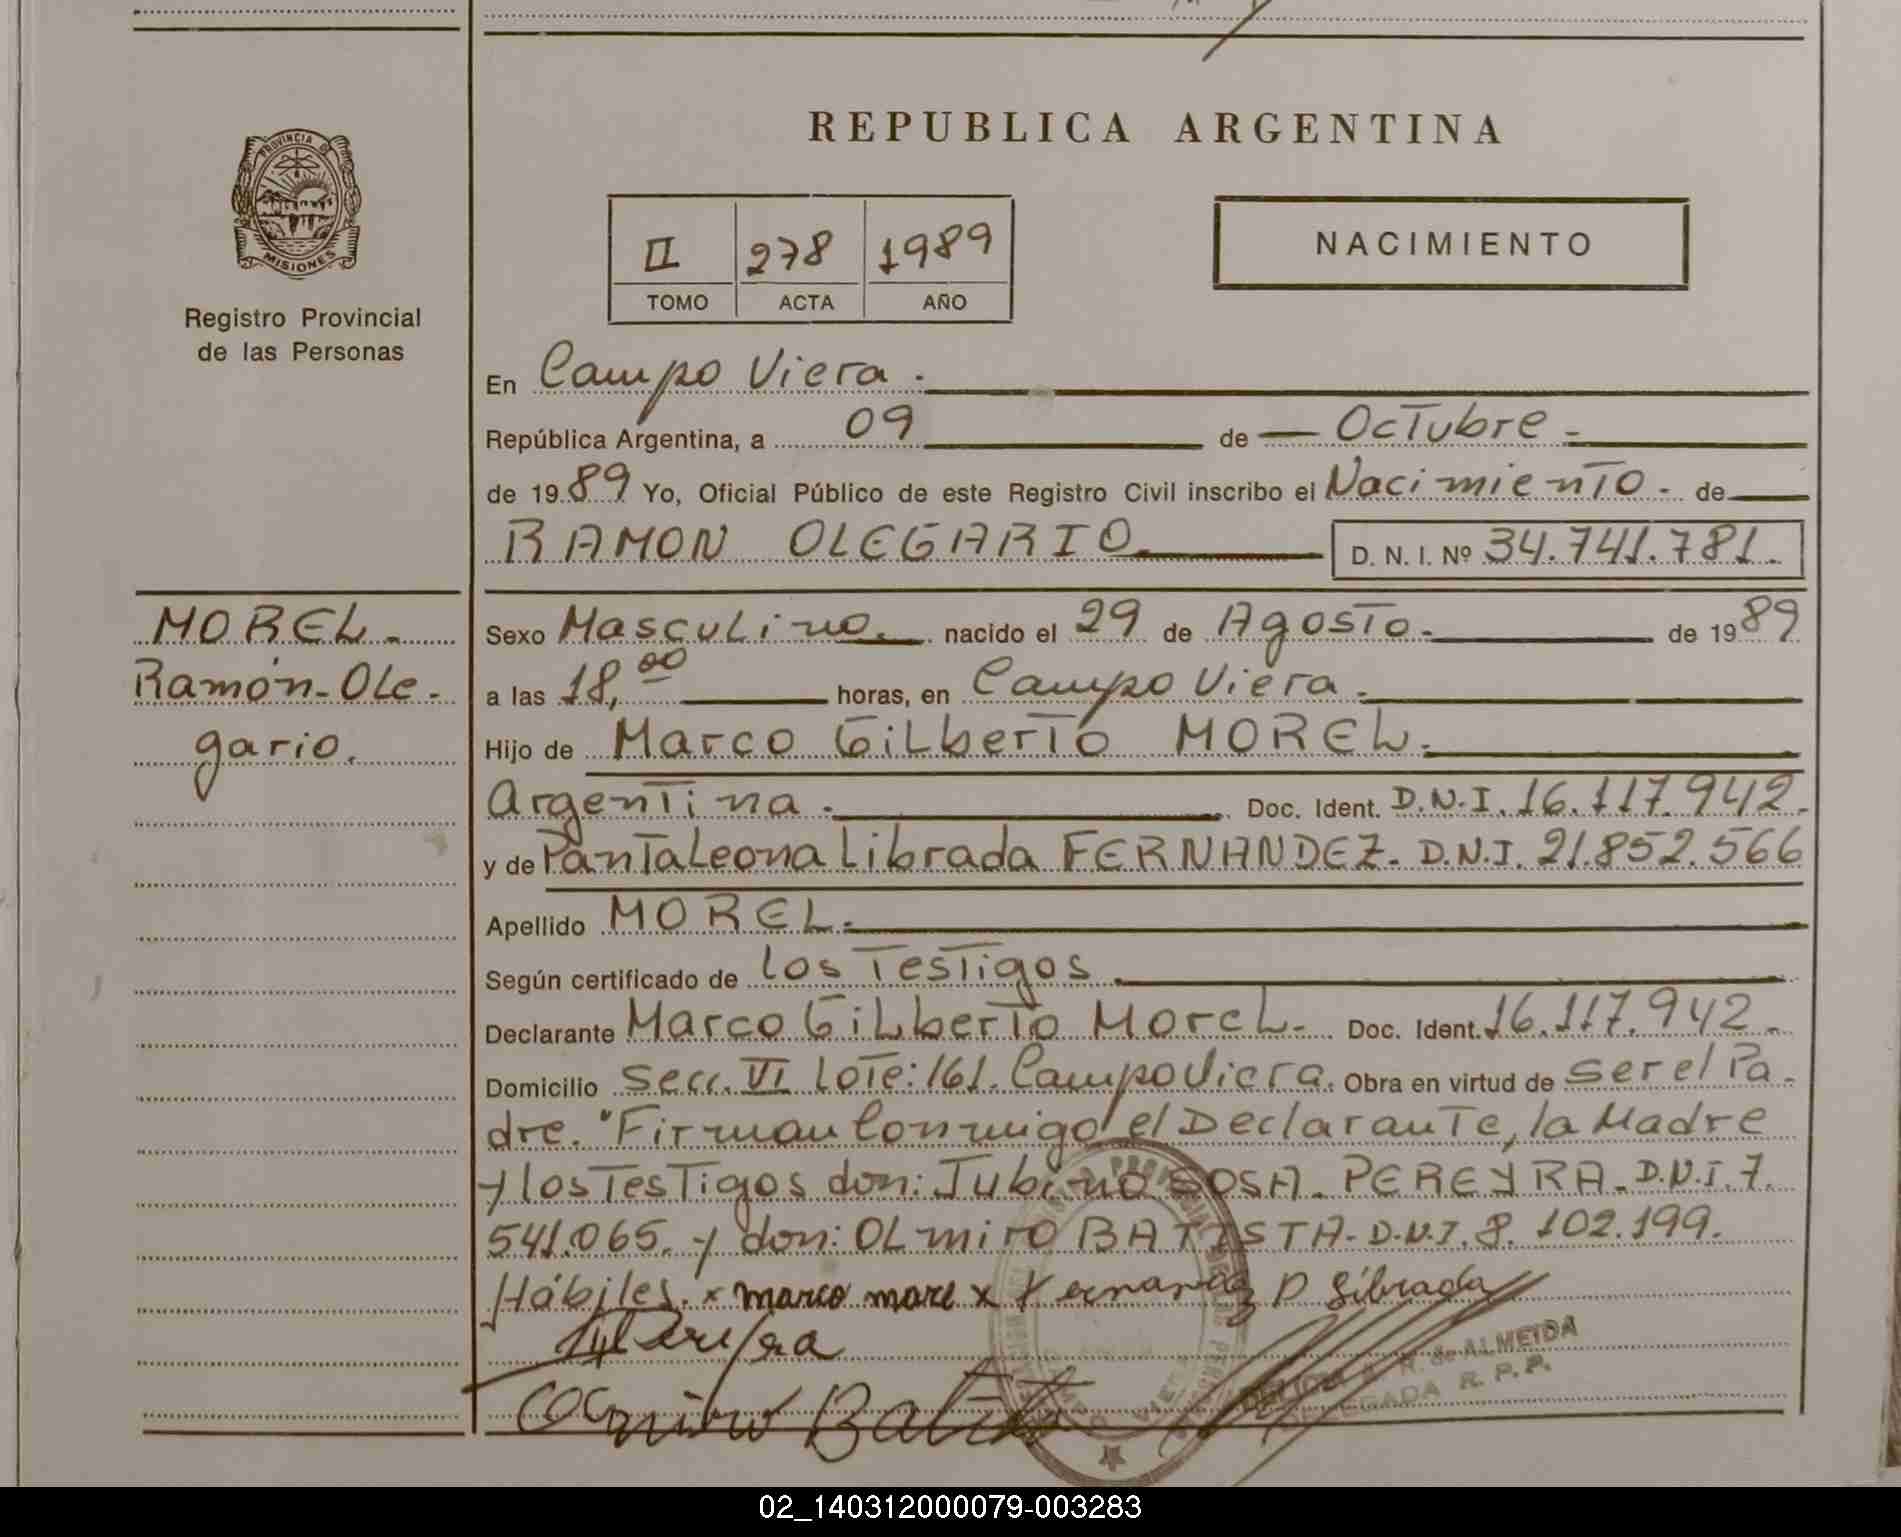 REPUBLICA ARGENTINA
PROVINCIA DE
MISIONES
Registro Provincial
de las Personas
II 278 1989
TOMO ACTA AÑO
NACIMIENTO
En Campo Viera.
República Argentina, a 09 de Octubre -
de 1989 Yo, Oficial Público de este Registro Civil inscribo el Nacimiento. de
RAMON OLEGARIO. D. N. I. Nº 34.741.781.
MOREL.
Ramón-Ole-
gario.
Sexo Masculino. nacido el 29 de Agosto. de 1989
a las 18,00 horas, en Campo Viera.
Hijo de Marco Gilberto MOREL.
Argentina. Doc. Ident. D.N.I. 16.117.942.
y de Pantaleona Librada FERNANDEZ. D.N.I. 21.852.566
Apellido MOREL.
Según certificado de los Testigos.
Declarante Marco Gilberto Morel. Doc. Ident. 16.117.942.
Domicilio Secc. VI Lote: 161. Campo Viera. Obra en virtud de ser el Pa-
dre. "Firman Conmigo el Declarante, la Madre
y los Testigos don: Jubino SOSA. PEREYRA. D.N.I. 7.
541.065. y don: OLmiro BATISTA. D.N.I. 8.102.199.
Hábiles. x marco more x Fernandez P Librada
Pereyra
Batista
A. R. de ALMEIDA
DELEGADA R. P. P.
02_140312000079-003283